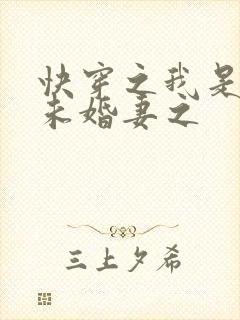 快穿之我是
未婚妻之
三上夕希